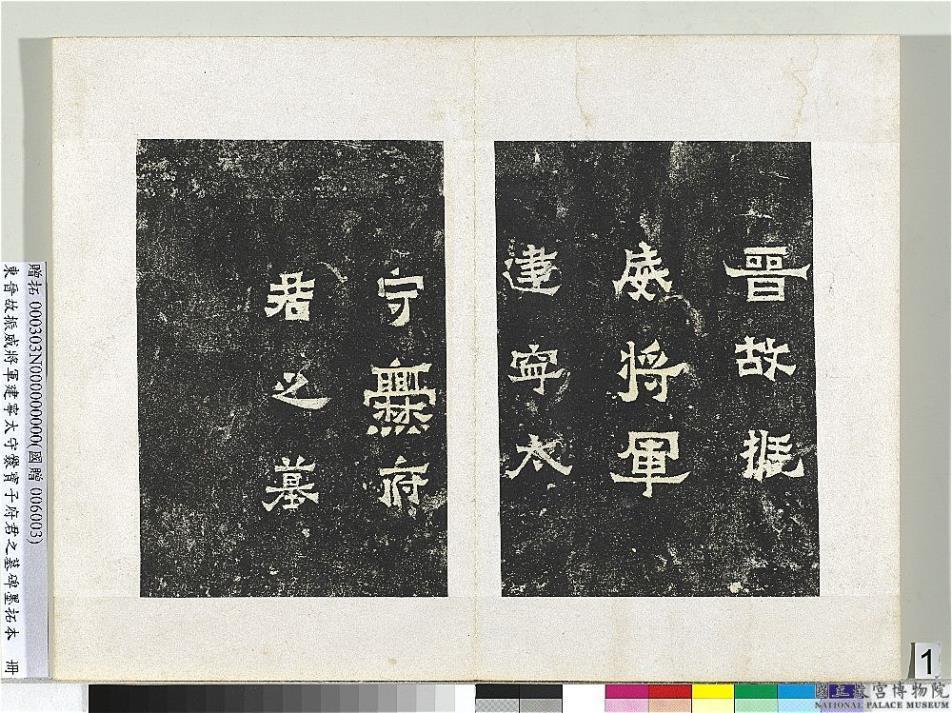 晉故振
威將軍
建寧太
守爨府
君之墓
贈拓 000303N000000000(國贈 006003)
東晉故振威將軍建寧太守爨寶子府君之墓碑墨拓本 冊
1
國立故宮博物院
NATIONAL PALACE MUSEUM